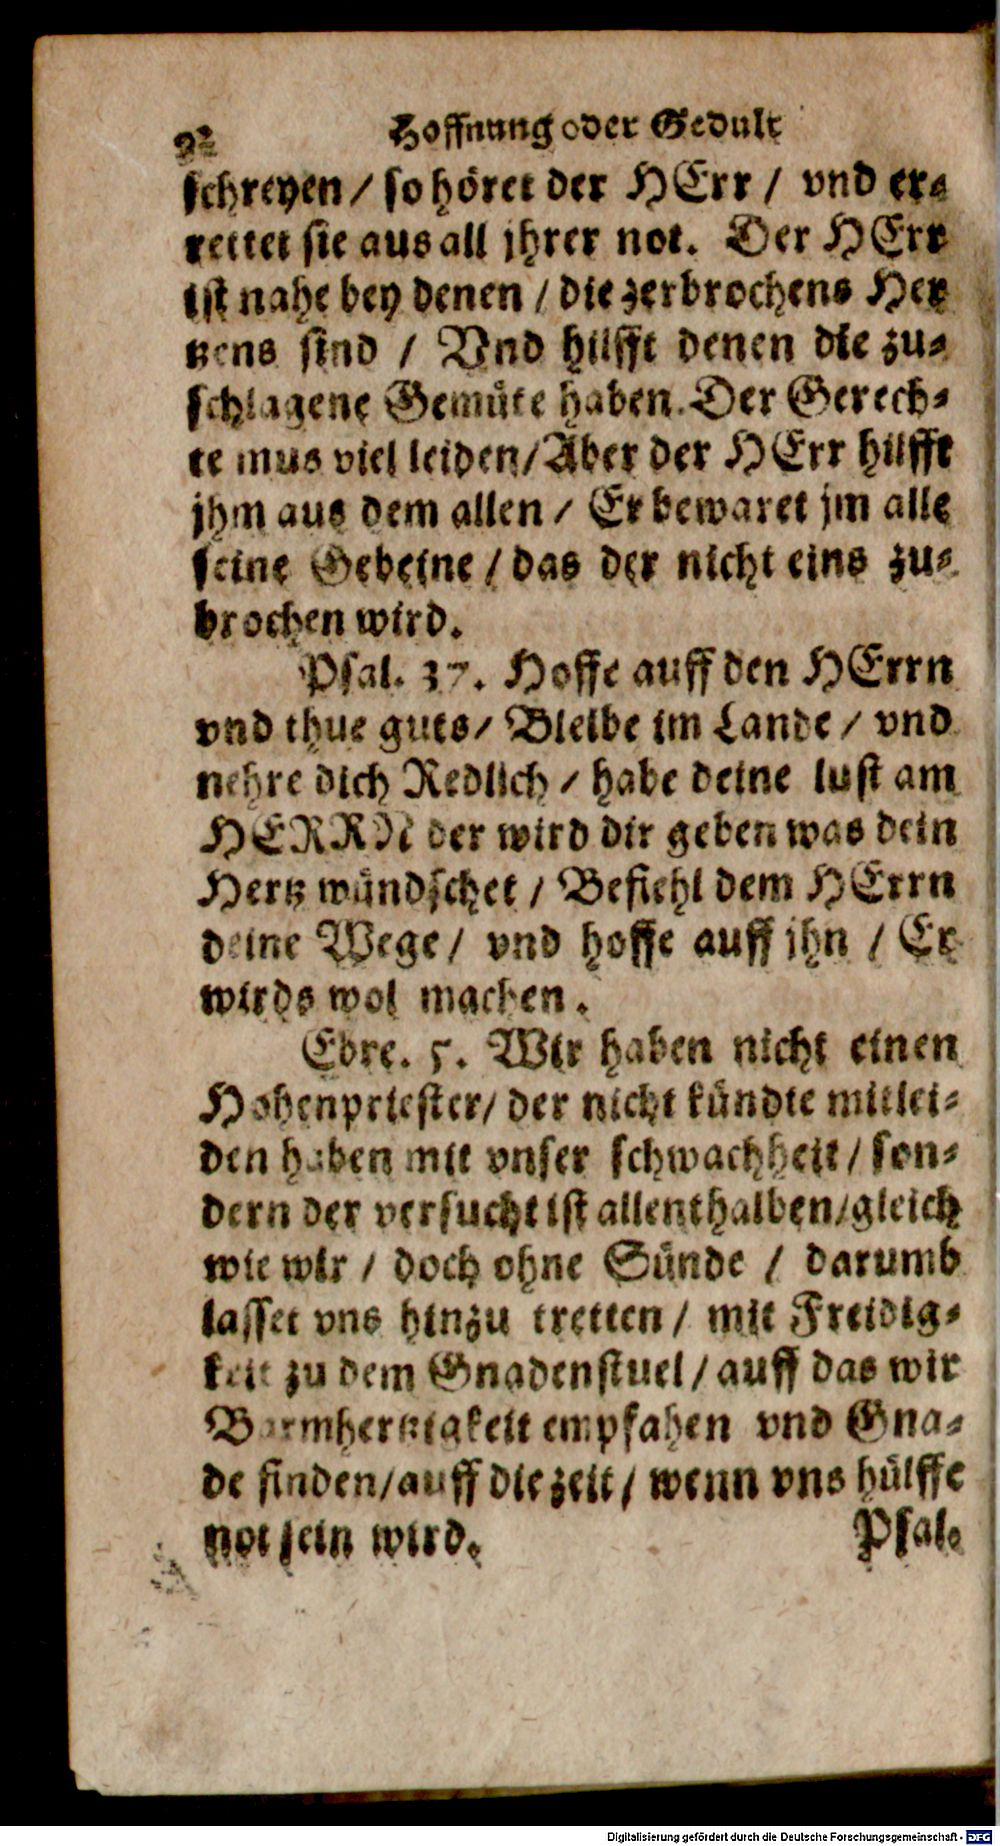 Hoffnung oder Gedult
schreyen / so höret der HErr / vnd er-
rettet sie aus all jhrer not. Der HErr
ist nahe bey denen / die zerbrochens Her
tzens sind / Vnd hilfft denen die zu-
schlagene Gemüte haben. Der Gerech-
te mus viel leiden / Aber der HErr hilfft
jhm aus dem allen / Er bewaret jm alle
seine Gebeine / das der nicht eins zu-
brochen wird.
Psal. 37. Hoffe auff den HErrn
vnd thue guts / Bleibe im Lande / vnd
nehre dich Redlich / habe deine lust am
HERRN der wird dir geben was dein
Hertz wündschet / Befiehl dem HErrn
deine Wege / vnd hoffe auff jhn / Er
wirds wol machen.
Ebre. 5. Wir haben nicht einen
Hohenpriester / der nicht kündte mitlei-
den haben mit vnser schwachheit / son-
dern der versucht ist allenthalben / gleich
wie wir / doch ohne Sünde / darumb
lasset vns hinzu tretten / mit Freidig-
keit zu dem Gnadenstuel / auff das wir
Barmhertzigkeit empfahen vnd Gna-
de finden / auff die zeit / wenn vns hülffe
not sein wird. Psal.
Digitalisierung gefördert durch die Deutsche Forschungsgemeinschaft - DFG